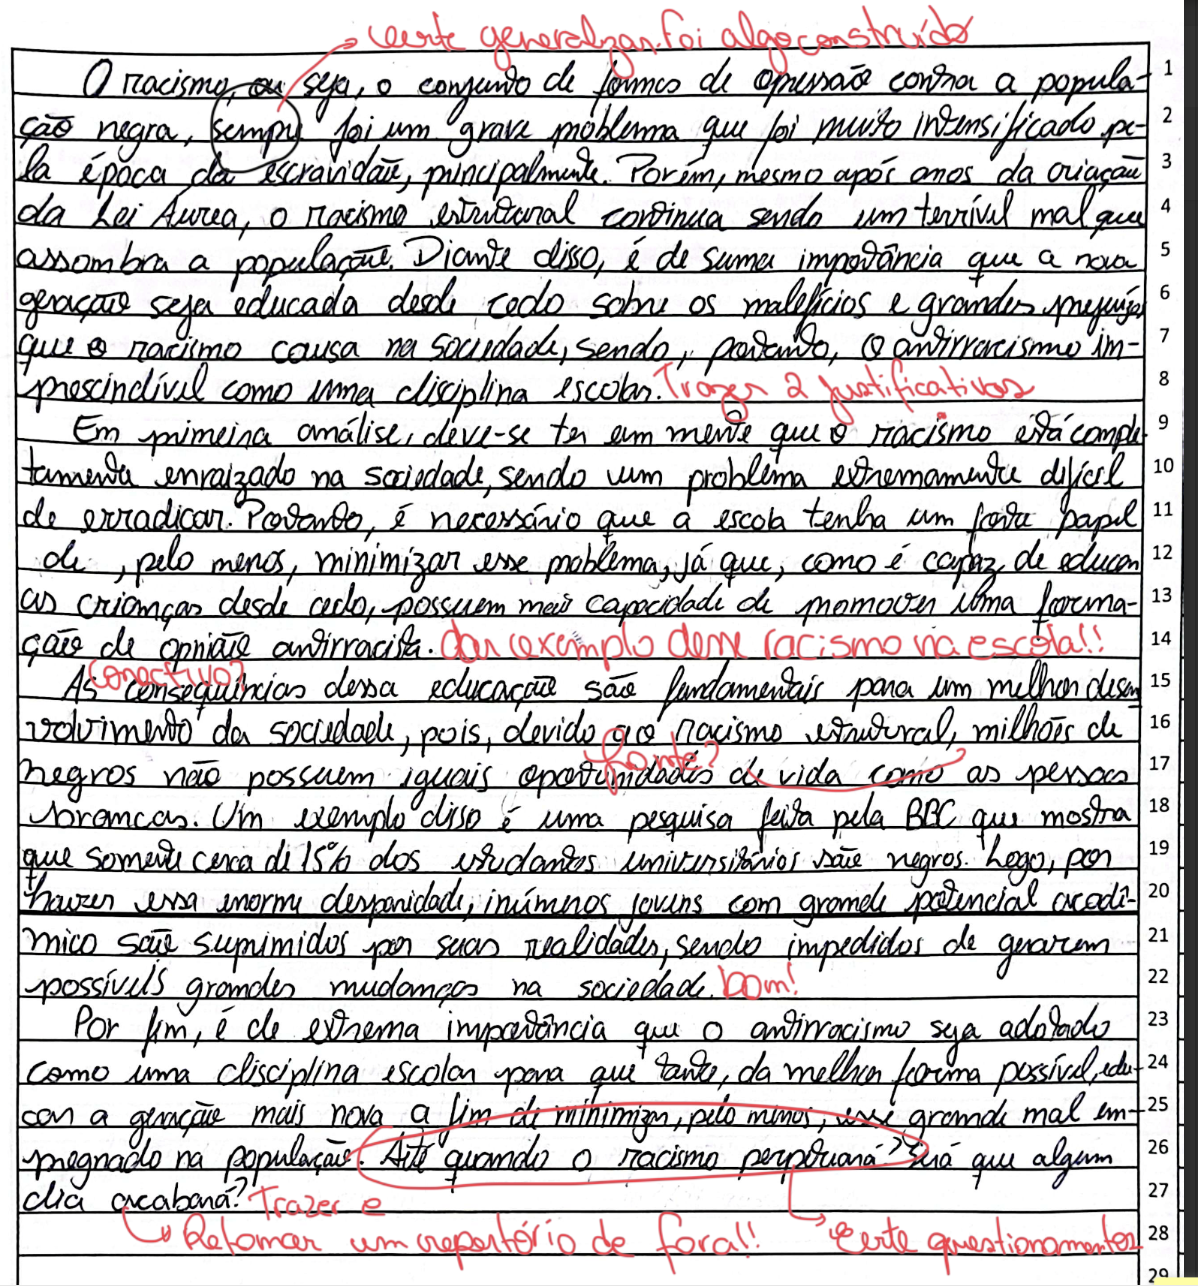 evite generalizar. Foi algo construído
O racismo, ou seja, o conjunto de formas de opressão contra a popula- 1
ção negra, sempre foi um grave problema que foi muito intensificado pe- 2
la época da escravidão, principalmente. Porém, mesmo após anos da criação 3
da Lei Áurea, o racismo estrutural continua sendo um terrível mal que 4
assombra a população. Diante disso, é de suma importância que a nova 5
geração seja educada desde cedo sobre os malefícios e grandes prejuízos 6
que o racismo causa na sociedade, sendo, portanto, o antirracismo im- 7
prescindível como uma disciplina escolar. Trazer 2 justificativas 8
Em primeira análise, deve-se ter em mente que o racismo está comple- 9
tamente enraizado na sociedade, sendo um problema extremamente difícil 10
de erradicar. Portanto, é necessário que a escola tenha um forte papel 11
de, pelo menos, minimizar esse problema, já que, como é capaz de educar 12
as crianças desde cedo, possuem mais capacidade de promover uma forma- 13
ção de opinião antirracista. dar exemplo desse racismo na escola!! 14
conectivo?
As consequências dessa educação são fundamentais para um melhor desen 15
volvimento da sociedade, pois, devido ao racismo estrutural, milhões de 16
fonte?
negros não possuem iguais oportunidades de vida como as pessoas 17
brancas. Um exemplo disso é uma pesquisa feita pela BBC que mostra 18
que somente cerca de 15% dos estudantes universitários são negros. Logo, por 19
haver essa enorme desparidade, inúmeros jovens com grande potencial acadê- 20
mico são suprimidos por suas realidades, sendo impedidos de gerarem 21
possíveis grandes mudanças na sociedade. bom! 22
Por fim, é de extrema importância que o antirracismo seja adotado 23
como uma disciplina escolar para que tente, da melhor forma possível, edu- 24
car a geração mais nova a fim de minimizar, pelo menos, esse grande mal em- 25
pregnado na população. Até quando o racismo perpetuará? Será que algum 26
dia acabará? Trazer e 27
Retomar um repertório de fora!! evite questionamentos 28
29